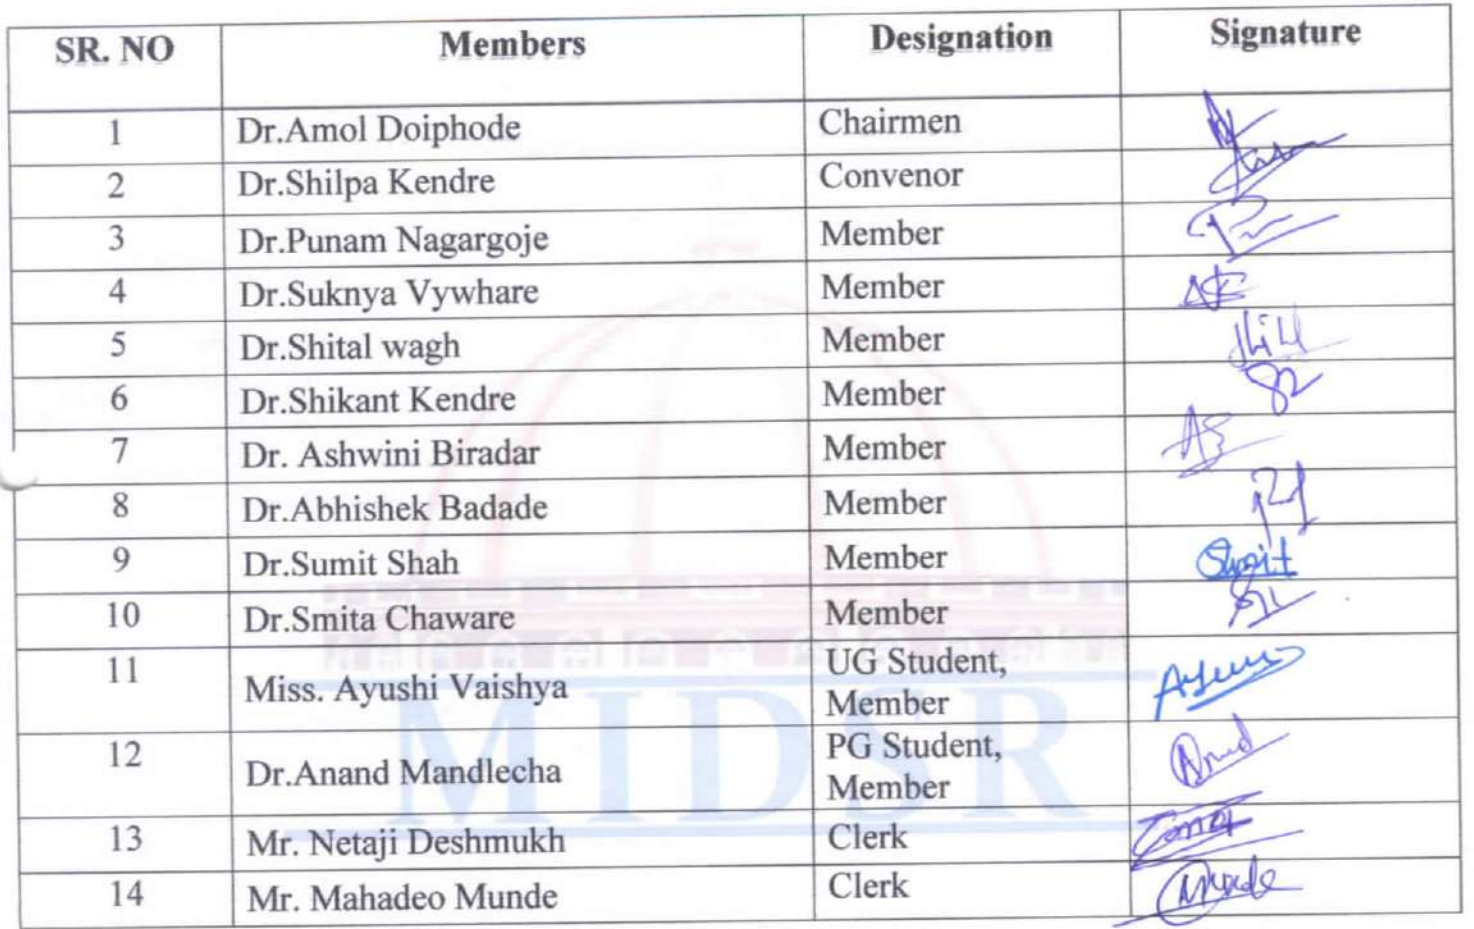 SR. NO Members Designation Signature
1 Dr.Amol Doiphode Chairmen
2 Dr.Shilpa Kendre Convenor
3 Dr.Punam Nagargoje Member
4 Dr.Suknya Vywhare Member
5 Dr.Shital wagh Member
6 Dr.Shikant Kendre Member
7 Dr. Ashwini Biradar Member
8 Dr.Abhishek Badade Member
9 Dr.Sumit Shah Member
10 Dr.Smita Chaware Member
11 Miss. Ayushi Vaishya UG Student,
Member
12 Dr.Anand Mandlecha PG Student,
Member
13 Mr. Netaji Deshmukh Clerk
14 Mr. Mahadeo Munde Clerk
MIDSR